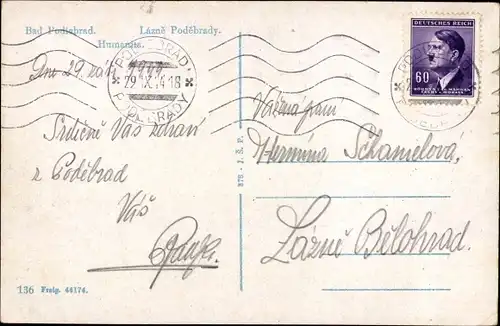 Bad Podiebrad. Lázně Poděbrady.
Humanita.
Dne 29. září 1944
PODĚBRADY
29.IX.44-18
Srdečně Vás zdraví
z Poděbrad
Váš
136 Freig. 44174.
DEUTSCHES REICH
60
BÖHMEN u. MÄHREN
ČECHY a MORAVA
Vážená paní
Hermína Schamelová,
Lázně Bělohrad.